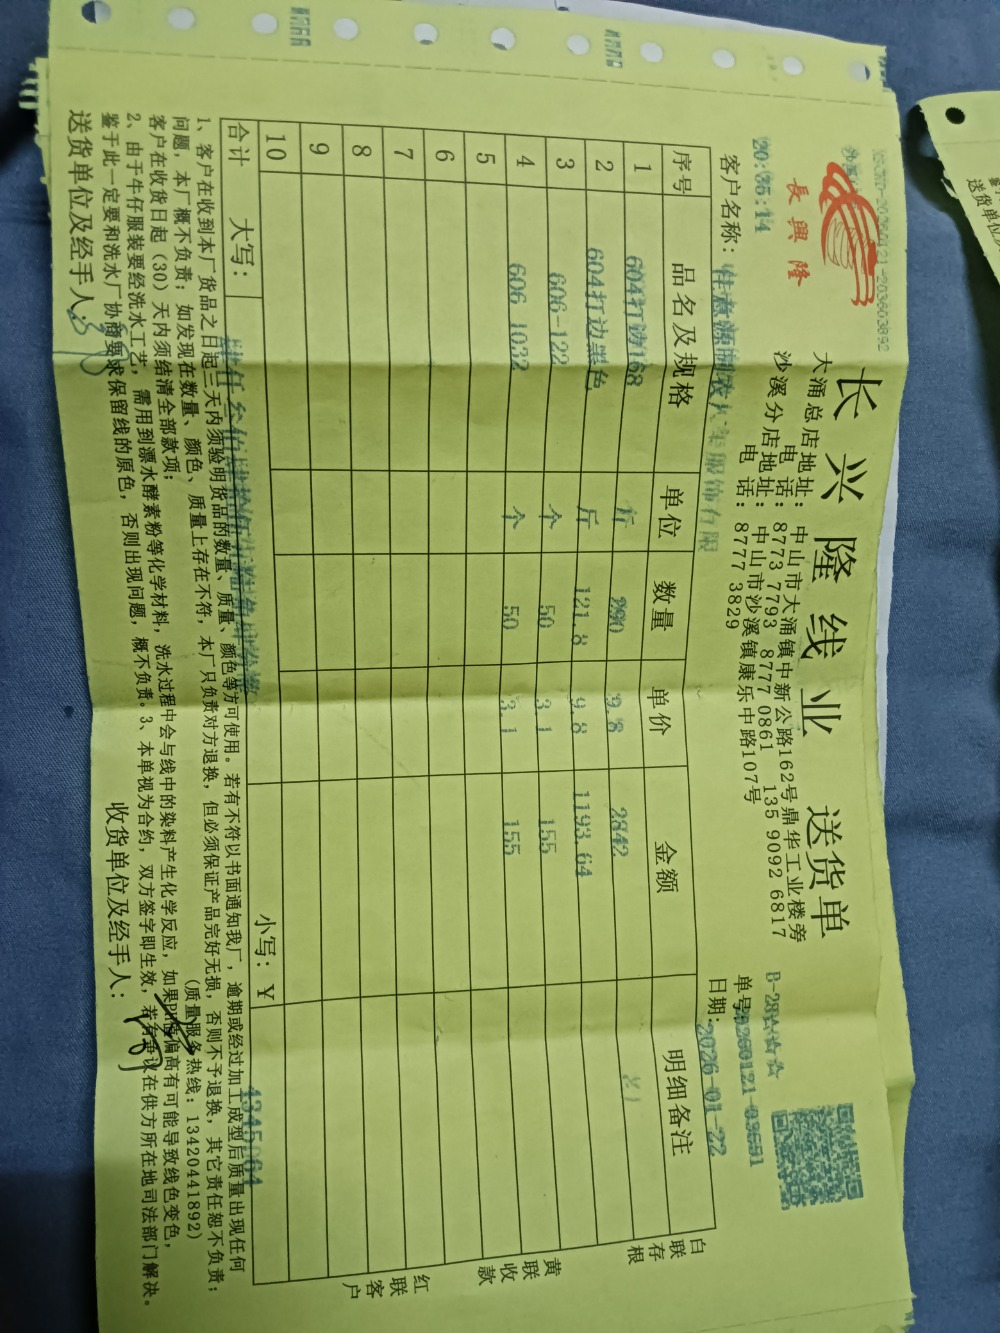 XSCKD-20260121-203603892
長興隆
20:35:14
长兴隆线业 送货单
大涌总店地址: 中山市大涌镇中新公路162号鼎华工业楼旁
电话: 8773 7793 8777 0861 135 9092 6817
沙溪分店地址: 中山市沙溪镇康乐中路107号
电话: 8777 3829
单号: 20260121-03651
客户名称:
服饰有限
日期: 2026-01-22
序号 品名及规格 单位 数量 单价 金额 明细备注
1 604打边168 斤 290 9.8 2842
2 604打边黑色 斤 121.8 9.8 1193.64
3 606-122 个 50 3.1 155
4 606 1032 个 50 3.1 155
5
6
7
8
9
10
合计 大写: 小写: ¥ 4345.64
1、客户在收到本厂货品之日起三天内须验明货品的数量、质量、颜色等方可使用。若有不符以书面通知我厂,逾期或经过加工成型后质量出现任何
问题,本厂概不负责;如发现在数量、颜色、质量上存在不符,本厂只负责对方退换,但必须保证产品完好无损,否则不予退换,其它责任恕不负责;
客户在收货日起(30)天内须结清全部款项; (质量服务热线:13420441892)
2、由于牛仔服装要经洗水工艺,需用到漂水酵素粉等化学材料,洗水过程中会与线中的染料产生化学反应,如果PH值偏高有可能导致线色变色,
鉴于此一定要和洗水厂协商要求保留线的原色,否则出现问题,概不负责。3、本单视为合约,双方签字即生效,若有争议在供方所在地司法部门解决。
送货单位及经手人:
收货单位及经手人:
白联存根
黄联收款
红联客户